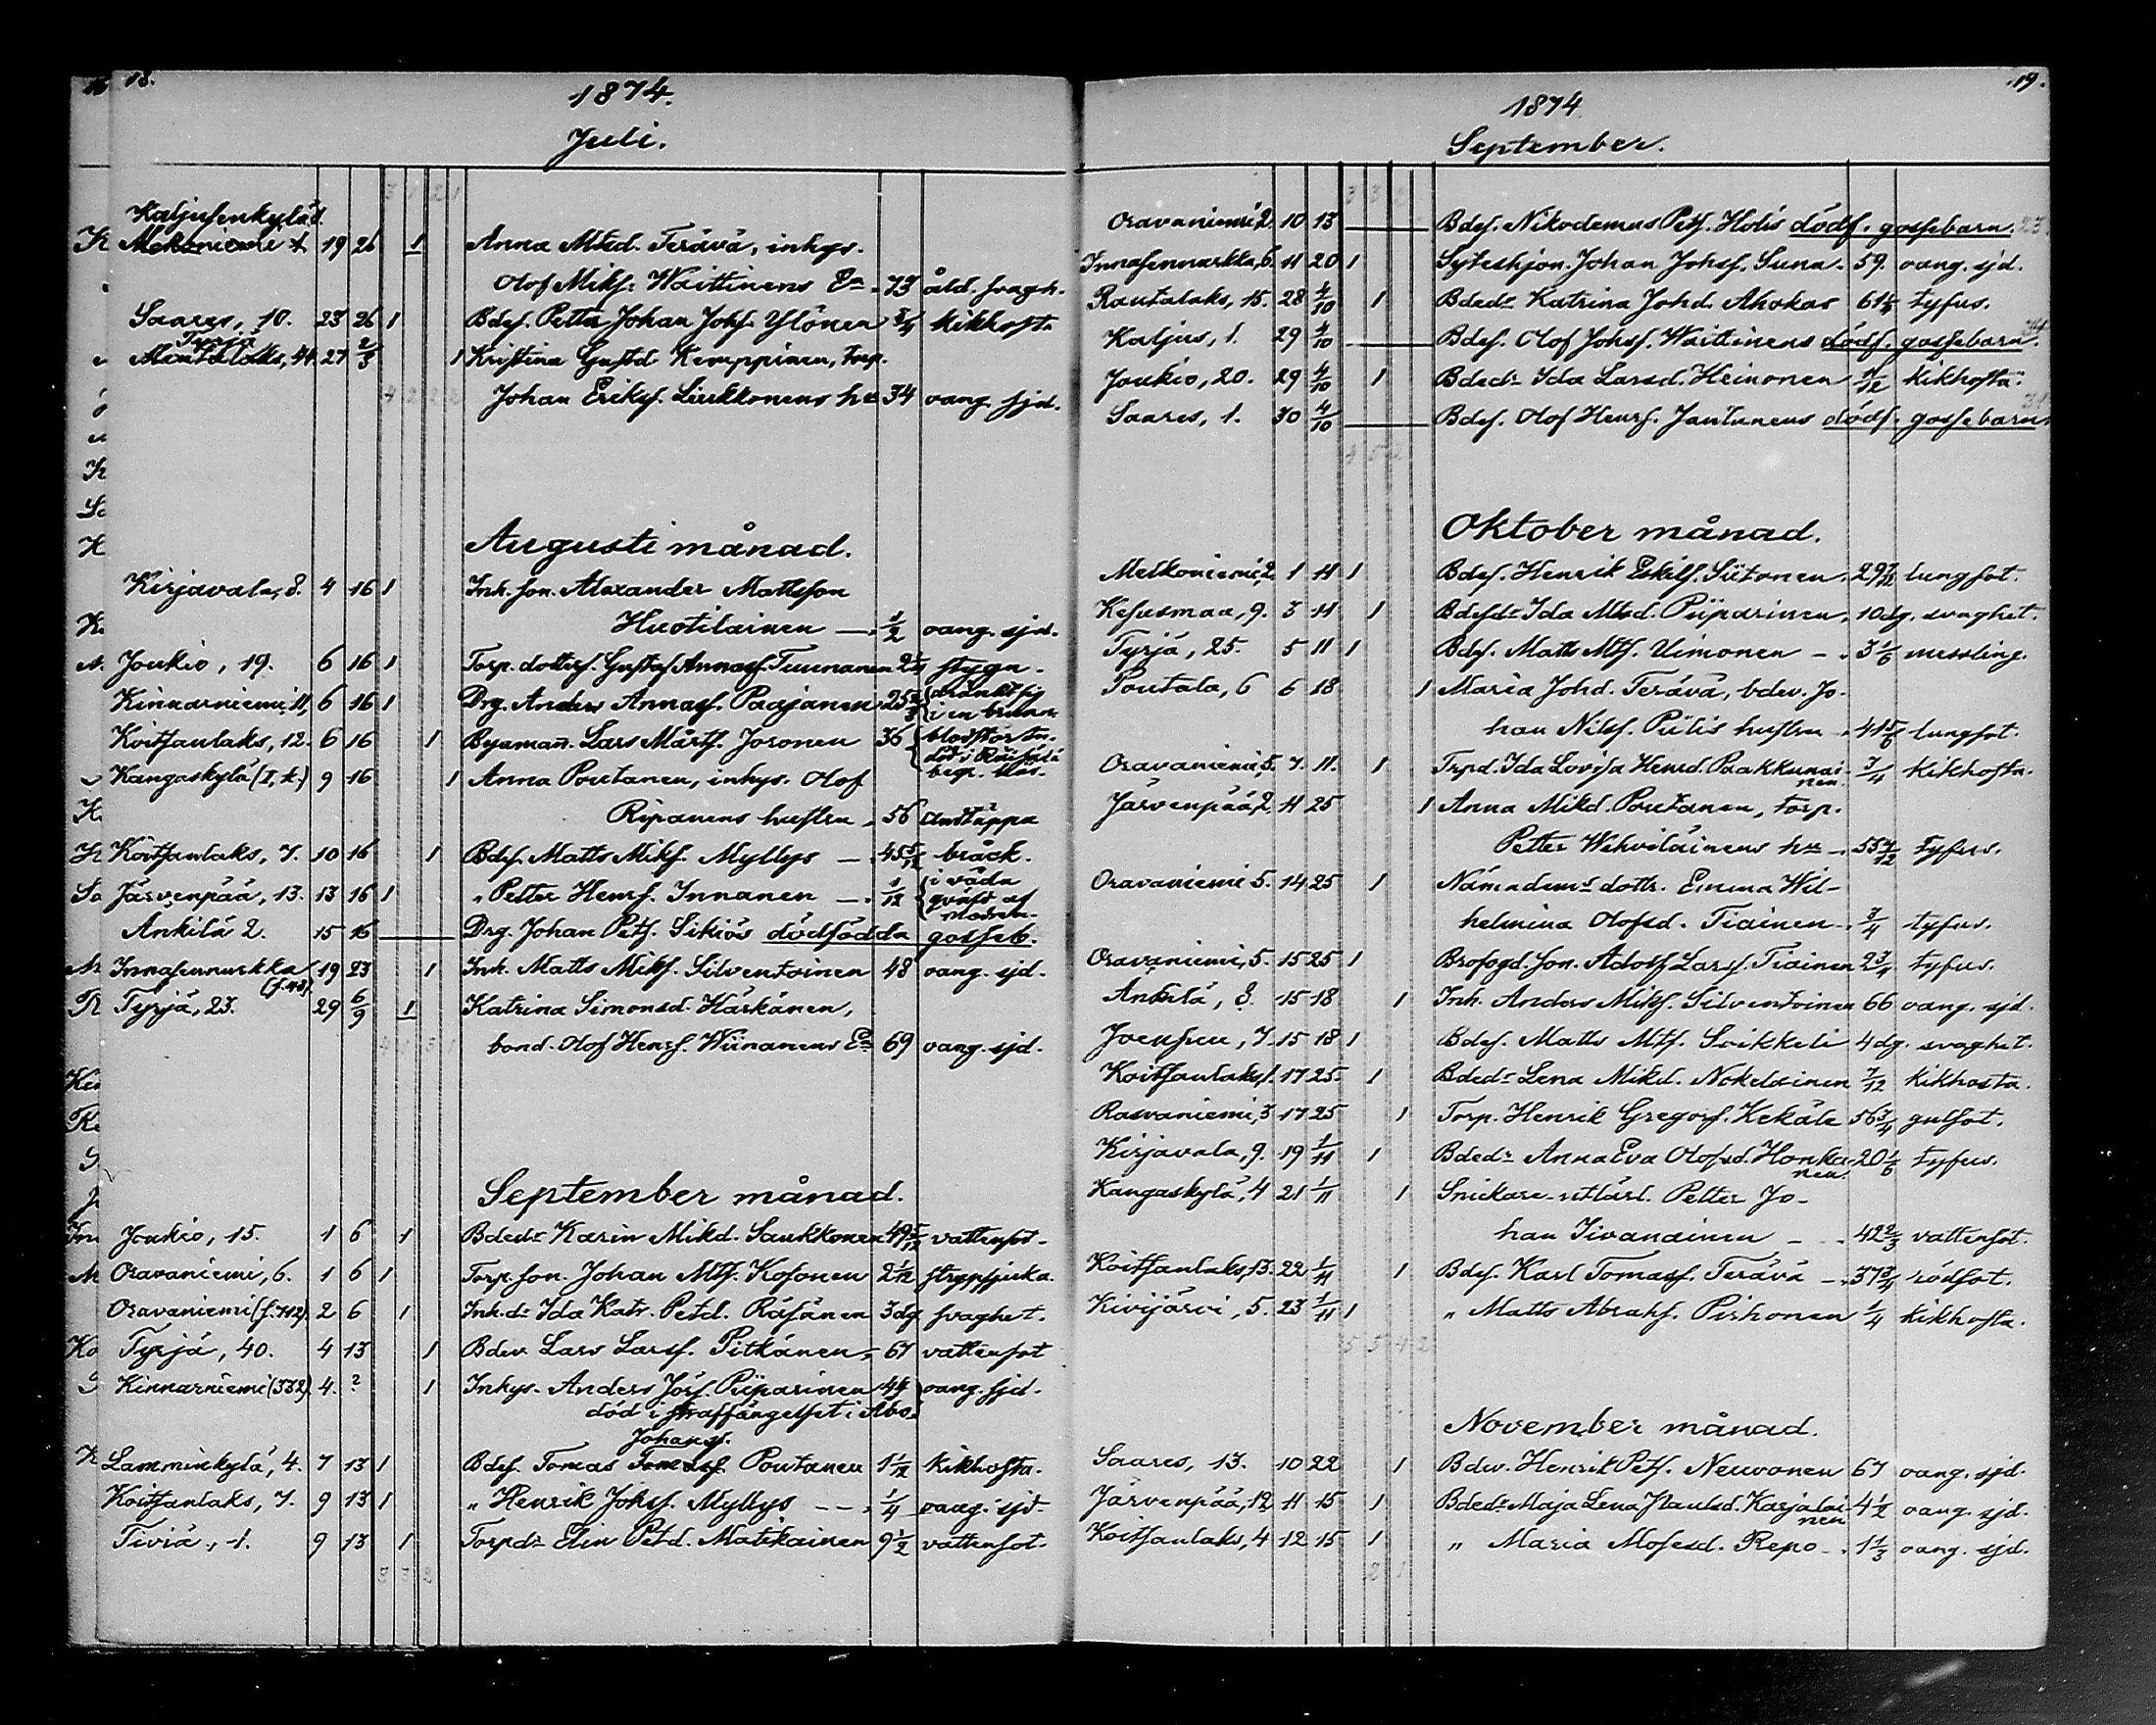 18.
1874.
Juli.
Kaljusenkylä 8.
19 26 1 Anna Mtsd. Terävä, inhys.
Olof Miks. Waittinens Ea 73 åld. svagh.
Saares, 10. 23 26 1 Bdes. Petter Johan Johs. Ylönen 3/4 kikhosta
Tyrjä
Mentalaks, 44. 27 2/8 1 Kristina Gustd Kemppinen, torp.
Johan Eriks. Liukkonens hu 34 oang. sjd.
Augusti månad.
Kirjavala, 8. 4 16 1 Inh. son. Alexander Mattsson
Huotilainen 1/2 oang. sjd.
Joukio, 19. 6 16 1 Torp. dotters. Gustaf Annas. Tuunanen stygn.
Kinnarniemi, 11, 6 16 1 Drg. Anders Annas. Paajanen dränkt sig i en brunn
Koitsanlaks, 12. 6 16 1 Byaman. Lars Mårts. Joronen 36 blodstörtn. död i Räisälä begr. där.
Kangaskylä (I, k.) 9 16 1 Anna Poutanen, inhys. Olof
Ripanens hustru 56 andtäppa
Koitsanlaks, 7. 10 16 1 Bdes. Matts Miks. Myllys 45 5/12 bråck.
Järvenpää, 13. 13 16 1 " Petter Henrs. Innanen 1/12 i våda qväfd af modren.
Ankilä 2. 15 16 Drg. Johan Pets. Sikiös dödfödda gosseb.
Innasennurkka 19 23 1 Inh. Matts Miks. Silventoinen 48 oang. sjd.
Tyrjä, 23. 29 6/9 1 Katrina Simonsd. Härkänen,
bond. Olof Henrs. Wiinanens Ea 69 oang. sjd.
September månad.
Joukio, 15. 1 6 1 Bdedr Karin Mikd. Saukkonen 49 5/12 vattensot.
Oravaniemi, 6. 1 6 1 Torp. son. Johan Mts. Kosonen 2 1/12 strypsjuka.
Oravaniemi (s. 712) 2 6 1 Inh. dr Ida Katr. Petd. Räsänen 3 dg. svaghet.
Tyrjä, 40. 4 13 1 Bdev. Lars Larss. Pitkänen 67 vattensot
Kinnarniemi (332) 4. ? 1 Inhys. Anders Jörs. Piiparinen 44 oang. sjd.
död i straffängelset i Åbo.
Johanss.
Lamminkylä, 4. 7 13 1 Bdes. Tomas Tomass. Poutanen 1 1/12 kikhosta.
Koitsanlaks, 7. 9 13 1 " Henrik Johss. Myllys 1/4 oang. sjd.
Tiviä, 1. 9 13 1 Torpdr Elin Petd. Matikainen 9 1/2 vattensot.
19.
1874
September.
Oravaniemi, 2. 10 13 Bdes. Nikodemus Pets. Holis dödf. gossebarn. 23.
Innasennurkka, 6. 11 20 1 Syteshjon. Johan Johss. Suna 59. oang. sjd.
Rautalaks, 15. 28 4/10 1 Bdedr Katrina Johd. Ahokas tyfus.
Kaljus, 1. 29 4/10 Bdes. Olof Johss. Waittinens dödf. gossebarn.
Joukio, 20. 29 4/10 1 Bdedr Ida Larsd. Heinonen kikhosta.
Saares, 1. 30 4/10 Bdes. Olof Henrs. Jantunens dödf. gossebarn.
Oktober månad.
Melkoniemi, 2. 1 11 1 Bdes. Henrik Eskils. Siitonen lungsot.
Kesusmaa, 9. 3 11 1 Bdesdr Ida Mtsd. Piiparinen 10 dg. svaghet.
Tyrjä, 25. 5 11 1 Bdes. Matts Mts. Uimonen 3 1/6 messling.
Poutala, 6 6 18 1 Maria Johd. Terävä, bdev. Jo-
han Nilss. Piilis hustru 41 5/6 lungsot.
Oravaniemi, 5. 7. 11. 1 Trpd. Ida Lovisa Henrd. Paakkunai-
nen. 3/4 kikhosta.
Järvenpää, 2. 11 25 1 Anna Mikd. Poutanen, torp.
Petter Wehviläinens hu 55 7/12 tyfus.
Oravaniemi 5. 14 25 1 Nämndems dottr. Emma Wil-
helmina Olofsd. Tiainen 3/4 tyfus.
Oravaniemi, 5. 15 25 1 Brofogd. son. Adolf Larss. Tiainen 2 3/4 tyfus.
Ankilä, 8. 15 18 1 Inh. Anders Miks. Silventoinen 66 oang. sjd.
Joensuu, 7. 15 18 1 Bdes. Matts Mts. Soikkeli 4 dg. svaghet.
Koitsanlaks, 1. 17 25. 1 Bdedr Lena Mikd. Nokelainen 7/12 kikhosta.
Rasvaniemi, 3 17 25 1 Torp. Henrik Gregors. Kekäle 56 3/4 gulsot.
Kirjavala, 9. 19 1/11 1 Bdedr Anna Eva Olofsd. Honka-
nen. 20 1/6 tyfus.
Kangaskylä, 4 21 1/11 1 Snickare-utlärl. Petter Jo-
han Iivanainen 42 2/3 vattensot.
Koitsanlaks, 13. 22 1/11 1 Bdes. Karl Tomass. Terävä 37 3/4 rödsot.
Kivijärvi, 5. 23 1/11 1 " Matts Abrahs. Pirhonen 1/4 kikhosta.
November månad.
Saares, 13. 10 22 1 Bdev. Henrik Pets. Neuvonen 67 oang. sjd.
Järvenpää, 12 11 15 1 Bdedr Maja Lena Paulsd. Karjalai-
nen 4 1/2 oang. sjd.
Koitsanlaks, 4 12 15 1 " Maria Mosesd. Repo 1 1/3 oang. sjd.